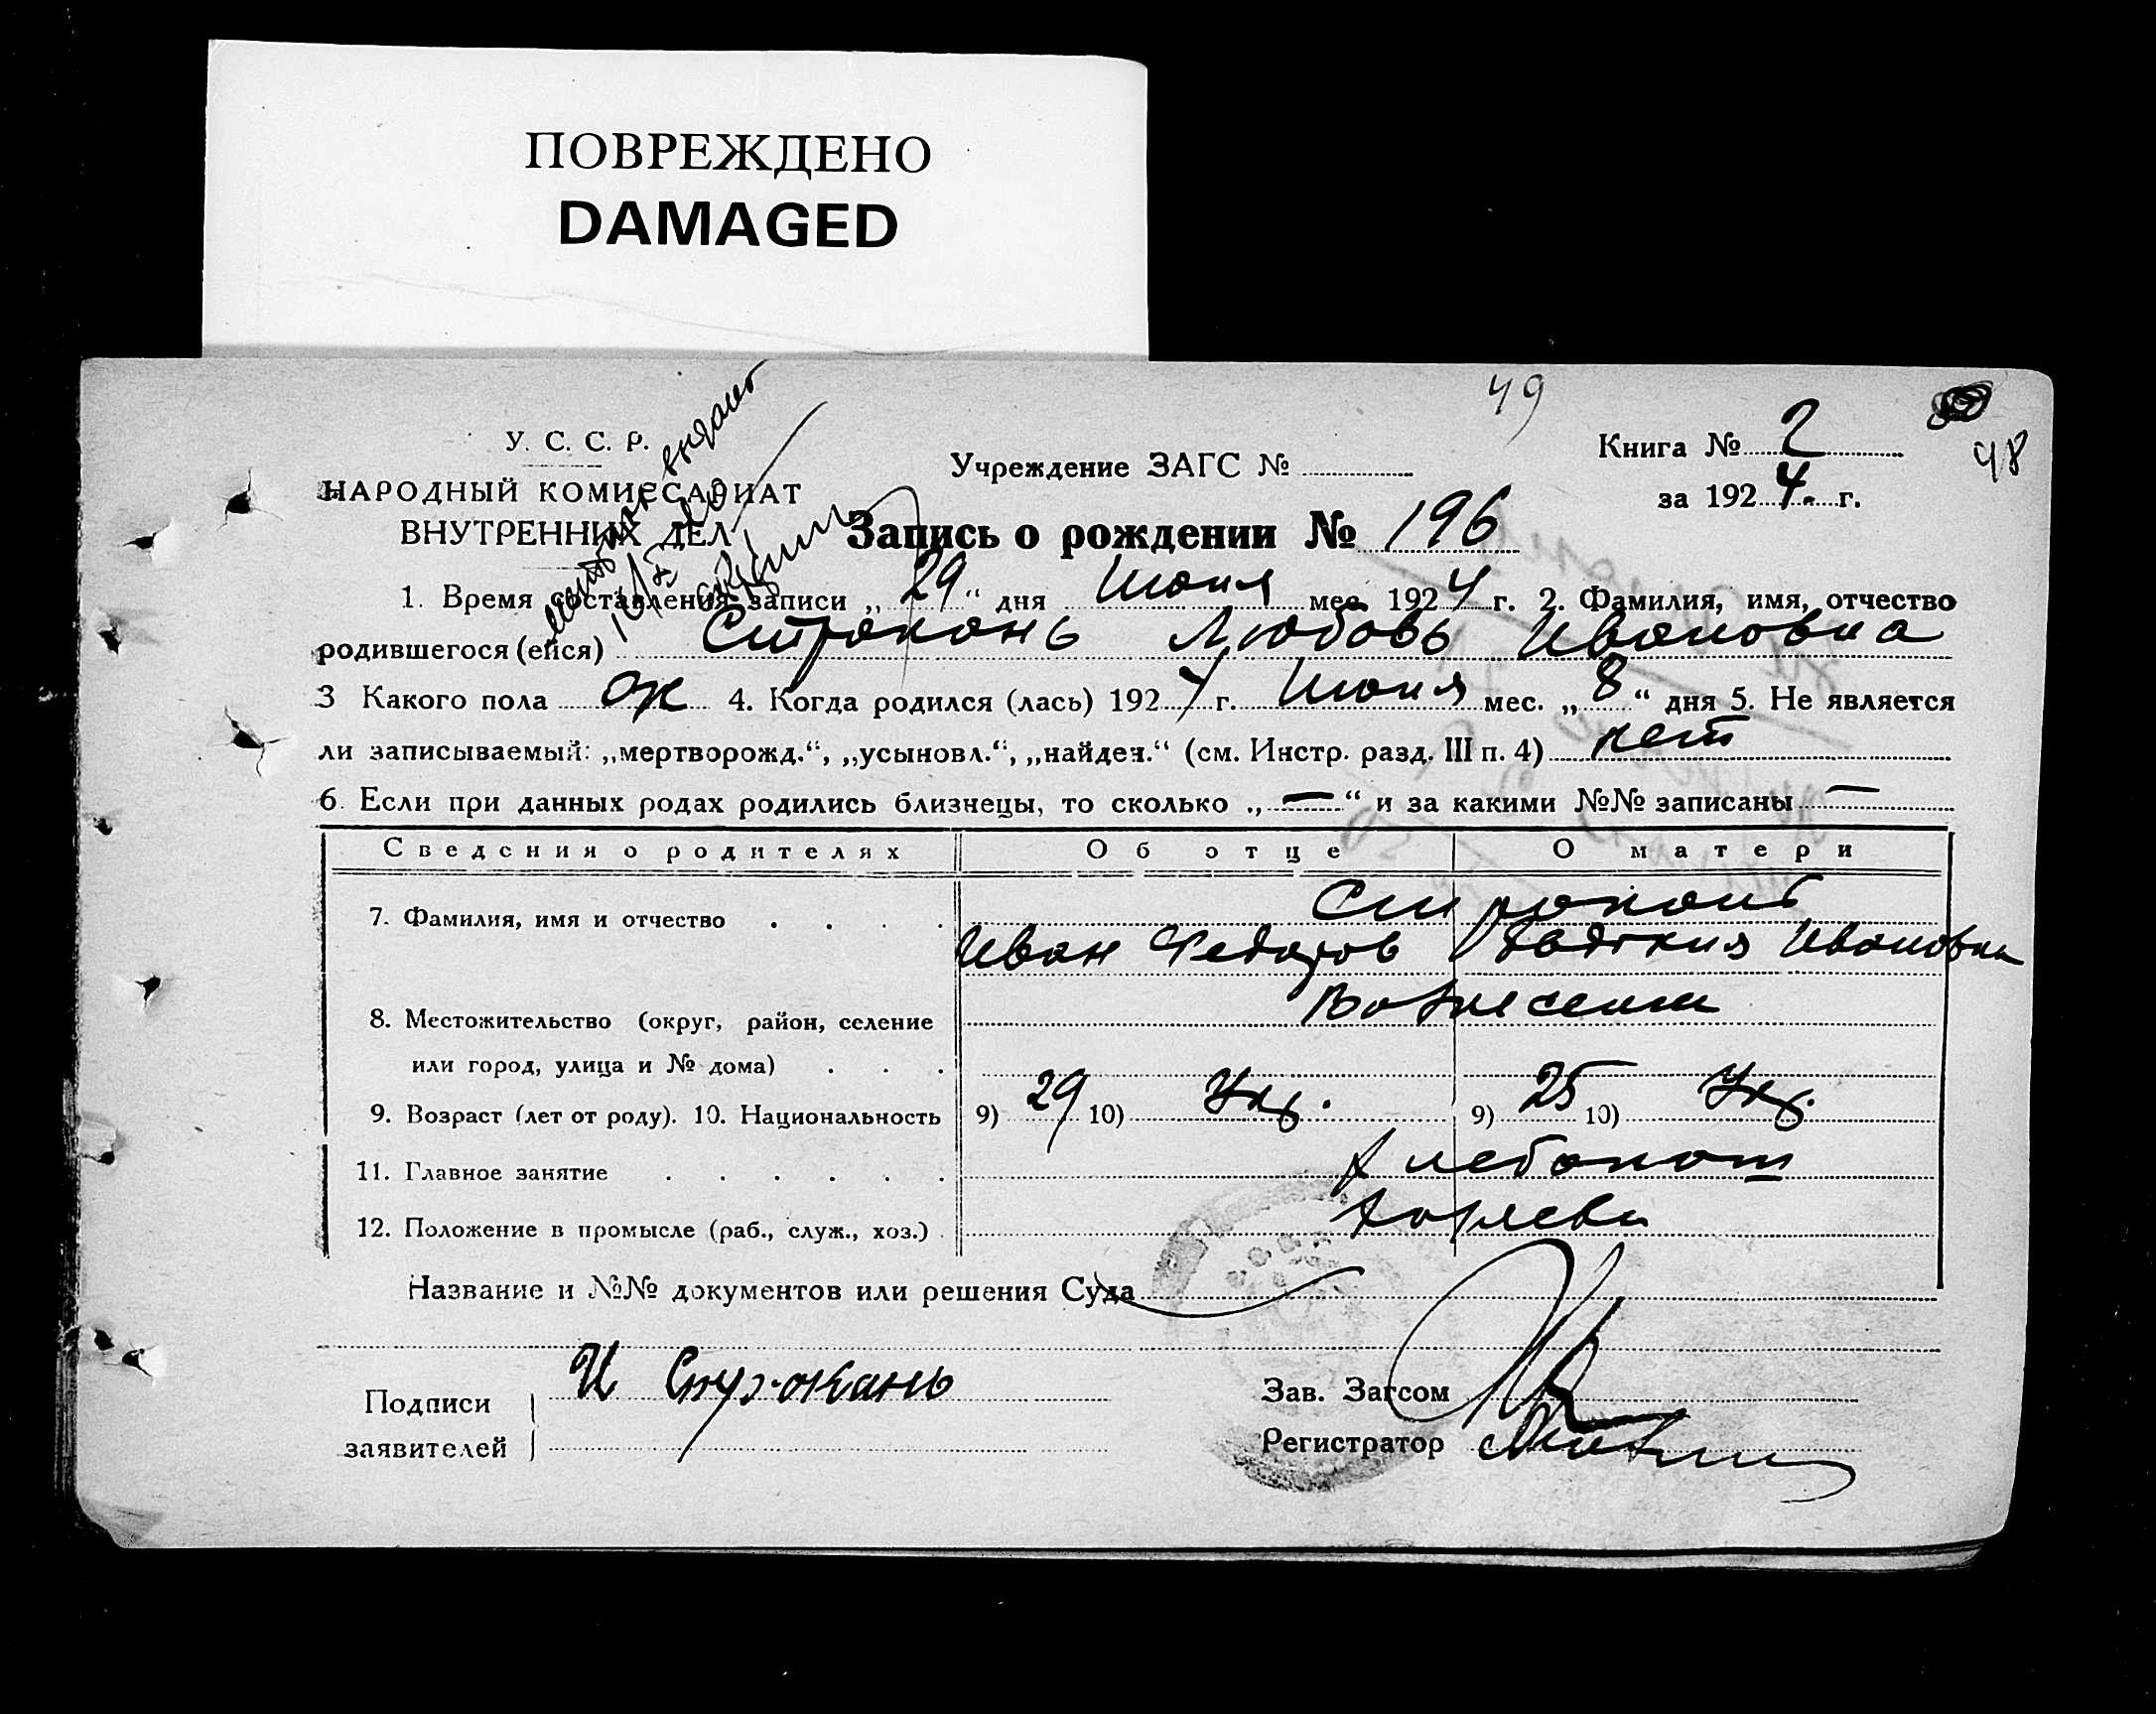 ПОВРЕЖДЕНО
DAMAGED
49
У. С. С. Р.
Учреждение ЗАГС №
Книга № 2
48
НАРОДНЫЙ КОМИССАРИАТ
за 1924 г.
ВНУТРЕННИХ ДЕЛ
выдано
Запись о рождении № 196
1. Время составления записи „29“ дня Июня мес. 1924 г. 2. Фамилия, имя, отчество
родившегося (ейся) Строкань Любовь Ивановна
3 Какого пола ж 4. Когда родился (лась) 1924 г. Июня мес. „8“ дня 5. Не является
ли записываемый: „мертворожд.“, „усыновл.“, „найден.“ (см. Инстр. разд. III п. 4) нет
6. Если при данных родах родились близнецы, то сколько „—“ и за какими №№ записаны —
Сведения о родителях Об отце О матери
7. Фамилия, имя и отчество . . . . Строкань
Иван Федоров Евдокия Ивановна
8. Местожительство (округ, район, селение
или город, улица и № дома) . . .
9. Возраст (лет от роду). 10. Национальность 9) 29 10) Укр. 9) 25 10) Укр.
11. Главное занятие . . . . . . Хлебопаш
12. Положение в промысле (раб., служ., хоз.) . Хозяева
Название и №№ документов или решения Суда
Подписи
заявителей
И Строкань
Зав. Загсом
Регистратор